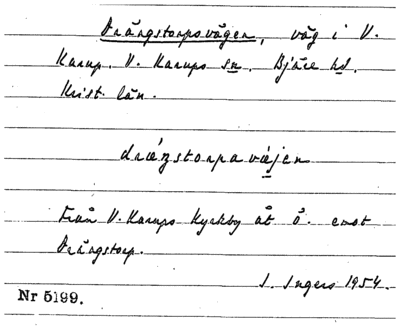 Drängstorpsvägen, väg i V.
Karup, V. Karups sn. Bjäre hd.
Krist. län.
drængstorpavæjen
Från V. Karups Kyrkby åt ö. emot
Drängstorp.
I. Ingers 1954.
Nr 5199.